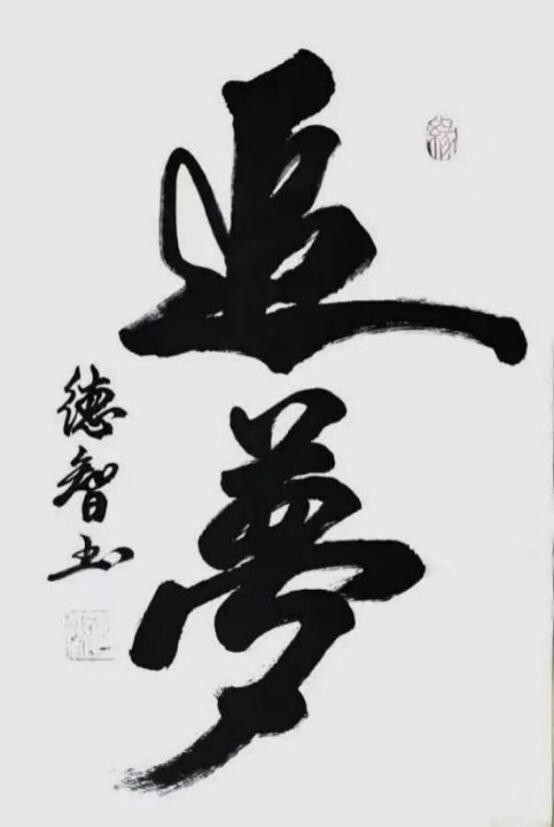 追夢
德智书
缘